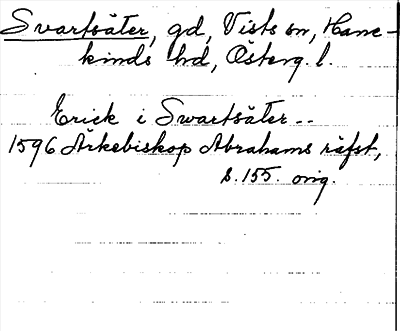 Svartsäter, gd, Vists sn, Hane-
kinds hd, Österg. l.
Erick i Swartsäter --
1596 Ärkebiskop Abrahams räfst,
s. 155. orig.